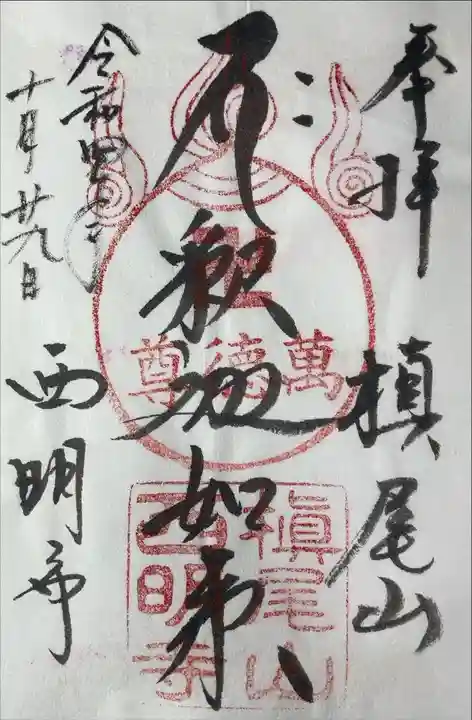 奉拝 槙尾山
釈迦如来
令和四年
十月廿九日
西明寺
萬德尊
槇尾山
西明寺